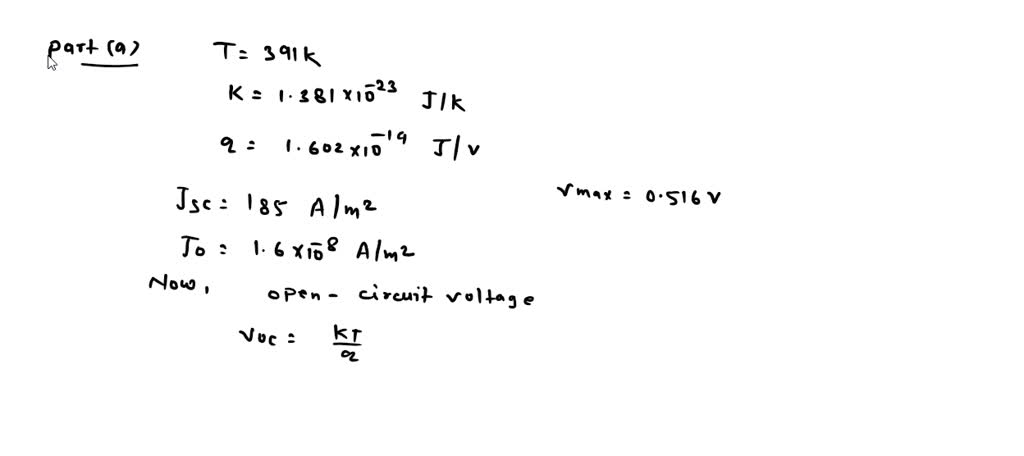 part (a) T = 391K
K = 1.381 × 10^-23 J/K
q = 1.602 × 10^-19 J/V
Jsc = 185 A/m2
Vmax = 0.516 V
J0 = 1.6 × 10^-8 A/m2
Now, open - circuit voltage
Voc = KT/q